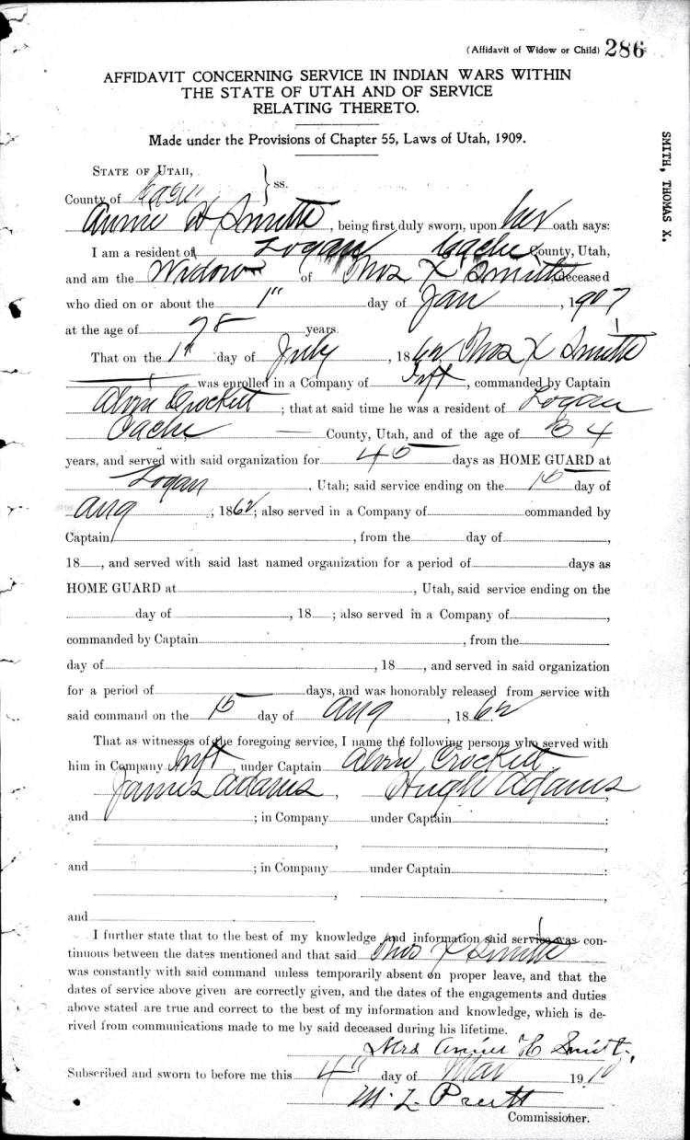 (Affidavit of Widow or Child) 286
AFFIDAVIT CONCERNING SERVICE IN INDIAN WARS WITHIN
THE STATE OF UTAH AND OF SERVICE
RELATING THERETO.
Made under the Provisions of Chapter 55, Laws of Utah, 1909.
SMITH, THOMAS X.
STATE OF UTAH,
County of Cache } ss.
Annie H Smith, being first duly sworn, upon her oath says:
I am a resident of Logan Cache County, Utah,
and am the Widow of Thos X Smith deceased
who died on or about the 1" day of Jan, 1907
at the age of 78 years.
That on the 1st day of July, 1862 Thos X Smith
was enrolled in a Company of Inft, commanded by Captain
Alvin Crockett; that at said time he was a resident of Logan
Cache County, Utah, and of the age of 34
years, and served with said organization for 45 days as HOME GUARD at
Logan, Utah; said service ending on the 15 day of
Aug, 1862; also served in a Company of commanded by
Captain, from the day of,
18, and served with said last named organization for a period of days as
HOME GUARD at, Utah, said service ending on the
day of, 18; also served in a Company of,
commanded by Captain, from the
day of, 18, and served in said organization
for a period of days, and was honorably released from service with
said command on the 15 day of Aug, 1862
That as witnesses of the foregoing service, I name the following persons who served with
him in Company Inft, under Captain Alvin Crockett
James Adams, Hugh Adams,
and ; in Company under Captain :
, ,
and ; in Company under Captain :
, ,
and
I further state that to the best of my knowledge and information said service was con-
tinuous between the dates mentioned and that said Thos X Smith
was constantly with said command unless temporarily absent on proper leave, and that the
dates of service above given are correctly given, and the dates of the engagements and duties
above stated are true and correct to the best of my information and knowledge, which is de-
rived from communications made to me by said deceased during his lifetime.
Mrs Annie H Smith,
Subscribed and sworn to before me this 4" day of Mar 1910
M. L. Pratt
Commissioner.